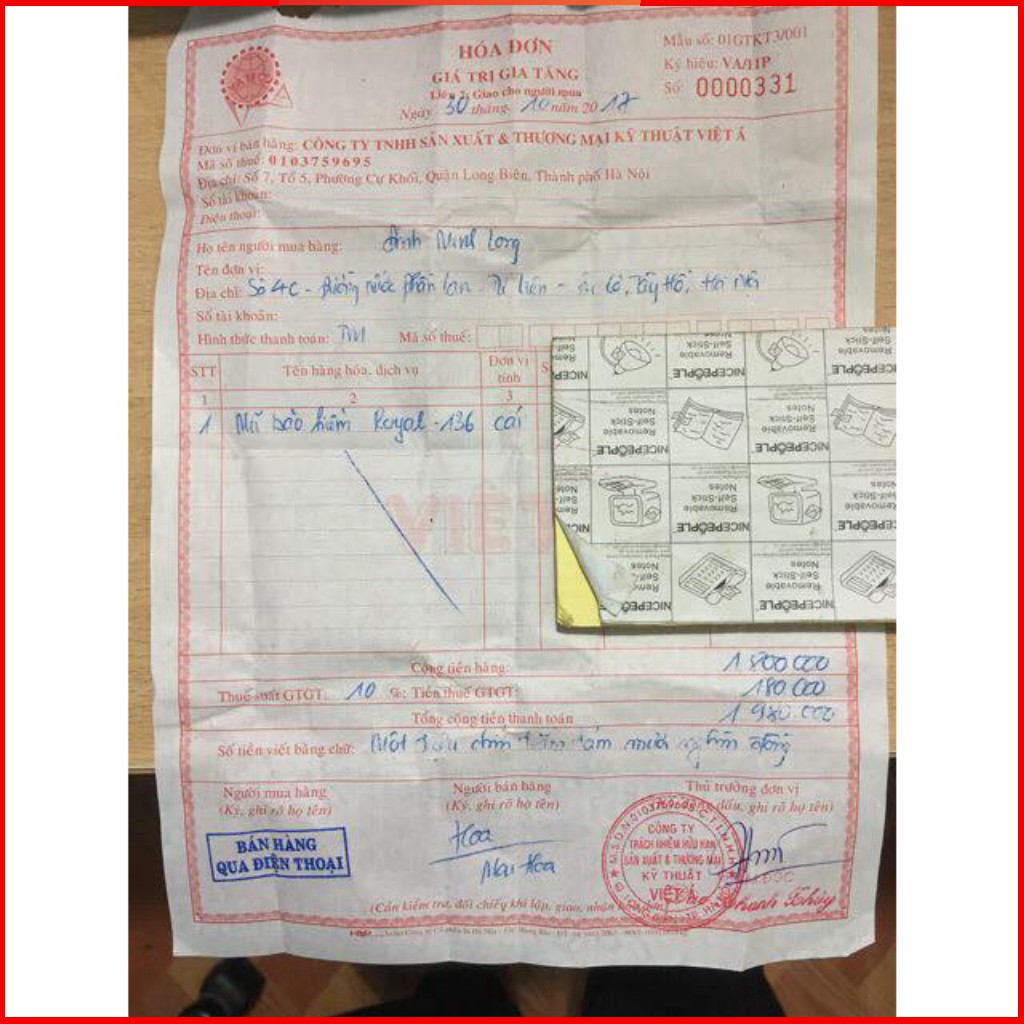 HÓA ĐƠN
GIÁ TRỊ GIA TĂNG
Liên 2: Giao cho người mua
Ngày 30 tháng 10 năm 2017
Mẫu số: 01GTKT3/001
Ký hiệu: VA/11P
Số: 0000331
Đơn vị bán hàng: CÔNG TY TNHH SẢN XUẤT & THƯƠNG MẠI KỸ THUẬT VIỆT Á
Mã số thuế: 0103759695
Địa chỉ: Số 7, Tổ 5, Phường Cự Khối, Quận Long Biên, Thành phố Hà Nội
Số tài khoản:
Điện thoại:
Họ tên người mua hàng: Đinh Ninh Long
Tên đơn vị:
Địa chỉ: Số 4C - đường nước phần lan - Tứ liên - Tây Hồ, Hà Nội
Số tài khoản:
Hình thức thanh toán: TM Mã số thuế:
STT Tên hàng hóa, dịch vụ Đơn vị tính S
1 2 3
1 Mũ bảo hiểm Royal -136 cái
VIỆT
NICEPEOPLE
Removable
Self-Stick
Notes
Cộng tiền hàng: 1 800 000
Thuế suất GTGT: 10 %: Tiền thuế GTGT: 180.000
Tổng cộng tiền thanh toán 1 980.000
Số tiền viết bằng chữ: Một triệu chín trăm tám mươi nghìn đồng
Người mua hàng Người bán hàng Thủ trưởng đơn vị
(Ký, ghi rõ họ tên) (Ký, ghi rõ họ tên) dấu, ghi rõ họ tên)
BÁN HÀNG
QUA ĐIỆN THOẠI
Hoa
Mai Hoa
M.S.D.N:0103759695-C.T.T.N.H.H
CÔNG TY
TRÁCH NHIỆM HỮU HẠN
SẢN XUẤT & THƯƠNG MẠI
KỸ THUẬT
VIỆT Á
Thanh Thủy
(Cần kiểm tra, đối chiếu khi lập, giao, nhận